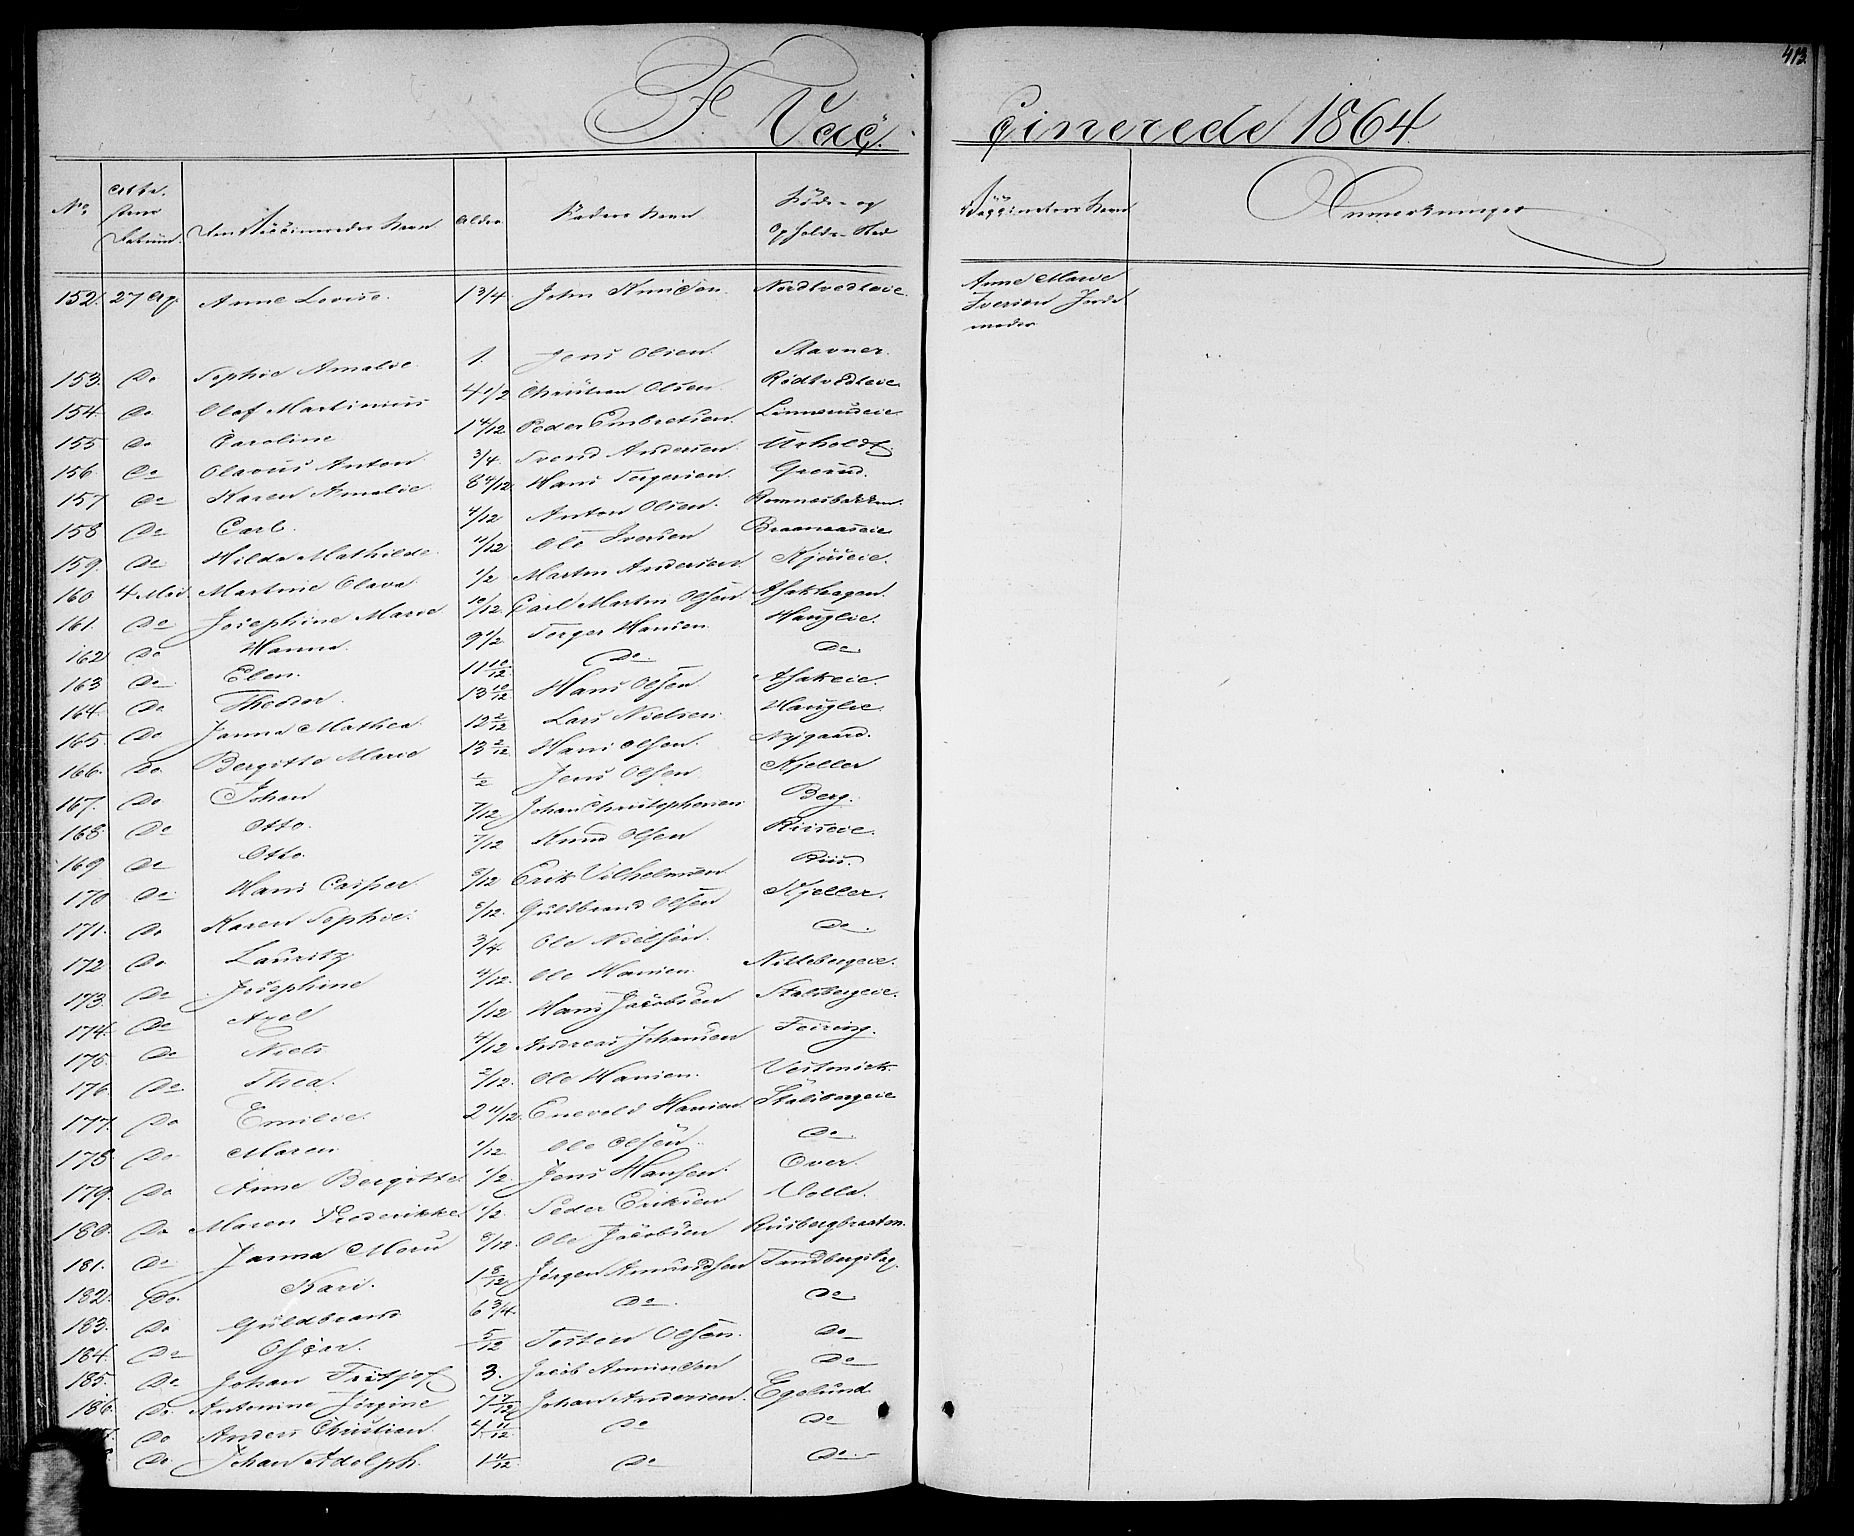 413
F. Vacçinerede 1864.
No. Attestens Datum. Den Vaccineredes Navn Alder Faders Navn Føde- og Opholds-Sted Vaççinatørs Navn Anmerkninger
152. 27 Aug. Anne Lovise. 1 3/4. John Knudsen. Nordtvedteie. Anne Marie
Iversen Jorde
moder
153. Do Sophie Amalie. 1. Jens Olsen. Stavner.
154. Do. Olaf Martinius 4 1/2 Christian Olsen. Rødtvedteie.
155 do Caroline 1 4/12 Peder Embretsen. Linnerudeie
156. Do Olavus Anton 3/4. Svend Andersen. Urholdt
157 Do Karen Amalie. 8 4/12. Hans Torgersen. Grorud.
158 Do Carl. 4/12 Anton Olsen. Rommesbakken.
159. Do Hilda Mathilde. 4/12 Ole Iversen Braanaaseie
160 4 Mai. Martine Olava 1/2 Martin Andersen. Kjuseie.
161. Do Josephine Marie 10/12. Carl Martin Olsen Asakhagen.
162 Do Hanna. 9 1/2. Torger Hansen. Hauglie.
163 Do. Elen. 11 10/12 Do. Do
164. Do Theodor. 13 10/12 Hans Olsen. Asakeie.
165. Do Janna Mathea. 12 2/12 Lars Nielsen. Hauglie.
166. Do. Bergitte Marie 13 2/12. Hans Olsen. Nygaard.
167. Do Johan 1/2 Jens Olsen. Kjeller
168 Do Otto. 7/12. Johan Christophersen Berg.
169 Do Otto. 7/12 Knud Olsen Riiseie.
170 Do. Hans Casper. 5/12 Erik Vilhelmsen Riis.
171. Do Karen Sophie. 8/12. Guldbrand Olsen Kjeller.
172 Do. Lauritz 3/4. Ole Nielsen. Do.
173. Do Josephine 4/12. Ole Hansen. Nittebergeie.
174. Do Axel 1/12 Hans Jacobsen Stalsbergeie.
175. Do Niels 4/12 Andreas Johansen Feiring.
176 Do Thea. 2/12. Ole Hansen. Vestnick.
177. Do Emilie. 2 4/12. Enevold Hansen. Stalsbergeie
178. Do Maren 1/12 Ole Olsen. Do.
179. Do Anne Bergitte 1/2. Jens Hansen. Over.
180. Do Maren Frederikke 1/2. Peder Eriksen Volla.
181. Do Janna Maria 8/12. Ole Jacobsen Riisbergbraaten.
182. Do. Kari. 1 8/12 Jørgen Amundsen Tandbergslag.
183. Do Guldbrand 6 3/4. Do. Do
184. Do Osçar. 5/12 Torsten Olsen. Do
185. Do Johan Fritjof 3. Jacob Amundsen Do
186. Do. Antonine Jørgine 7 7/12 Johan Andersen. Egelund
Do Anders Christian. 4 11/12 Do Do
Do. Johan Adolph. 1 4/12. Do Do.